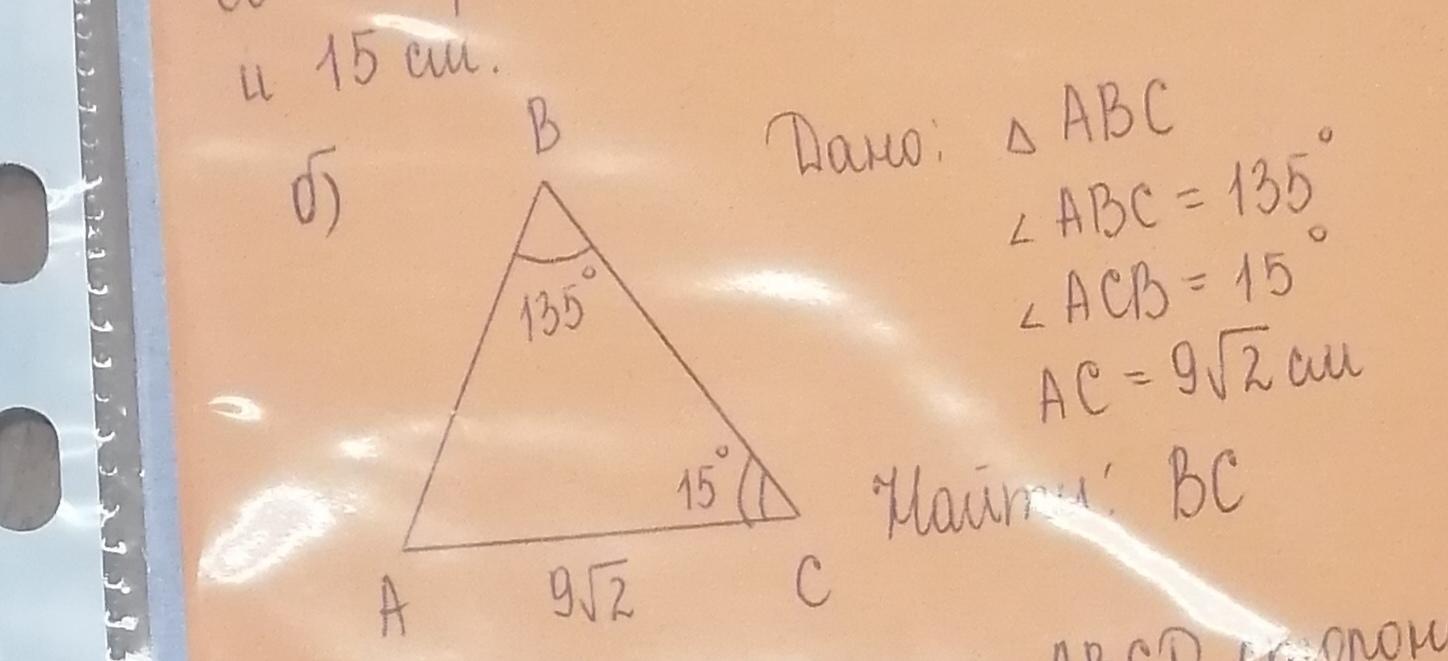 и 15 см.
б)
B
135°
15°
A
9√2
C
Дано: △ ABC
∠ ABC = 135°
∠ ACB = 15°
AC = 9√2 см
Найти: BC
ABCD